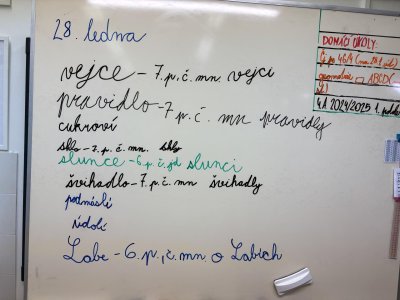 28. ledna
vejce - 7. p. č. mn. vejci
pravidlo - 7. p. č. mn pravidly
cukroví
sklo - 7. p. č. mn. skly
slunce - 6. p. č. jd slunci
švihadlo - 7. p. č. mn švihadly
podmáslí
údolí
Labe - 6. p., č. mn. o Labích
DOMÁCÍ ÚKOLY:
ABCD
4.A 2024/2025 1. pololetí